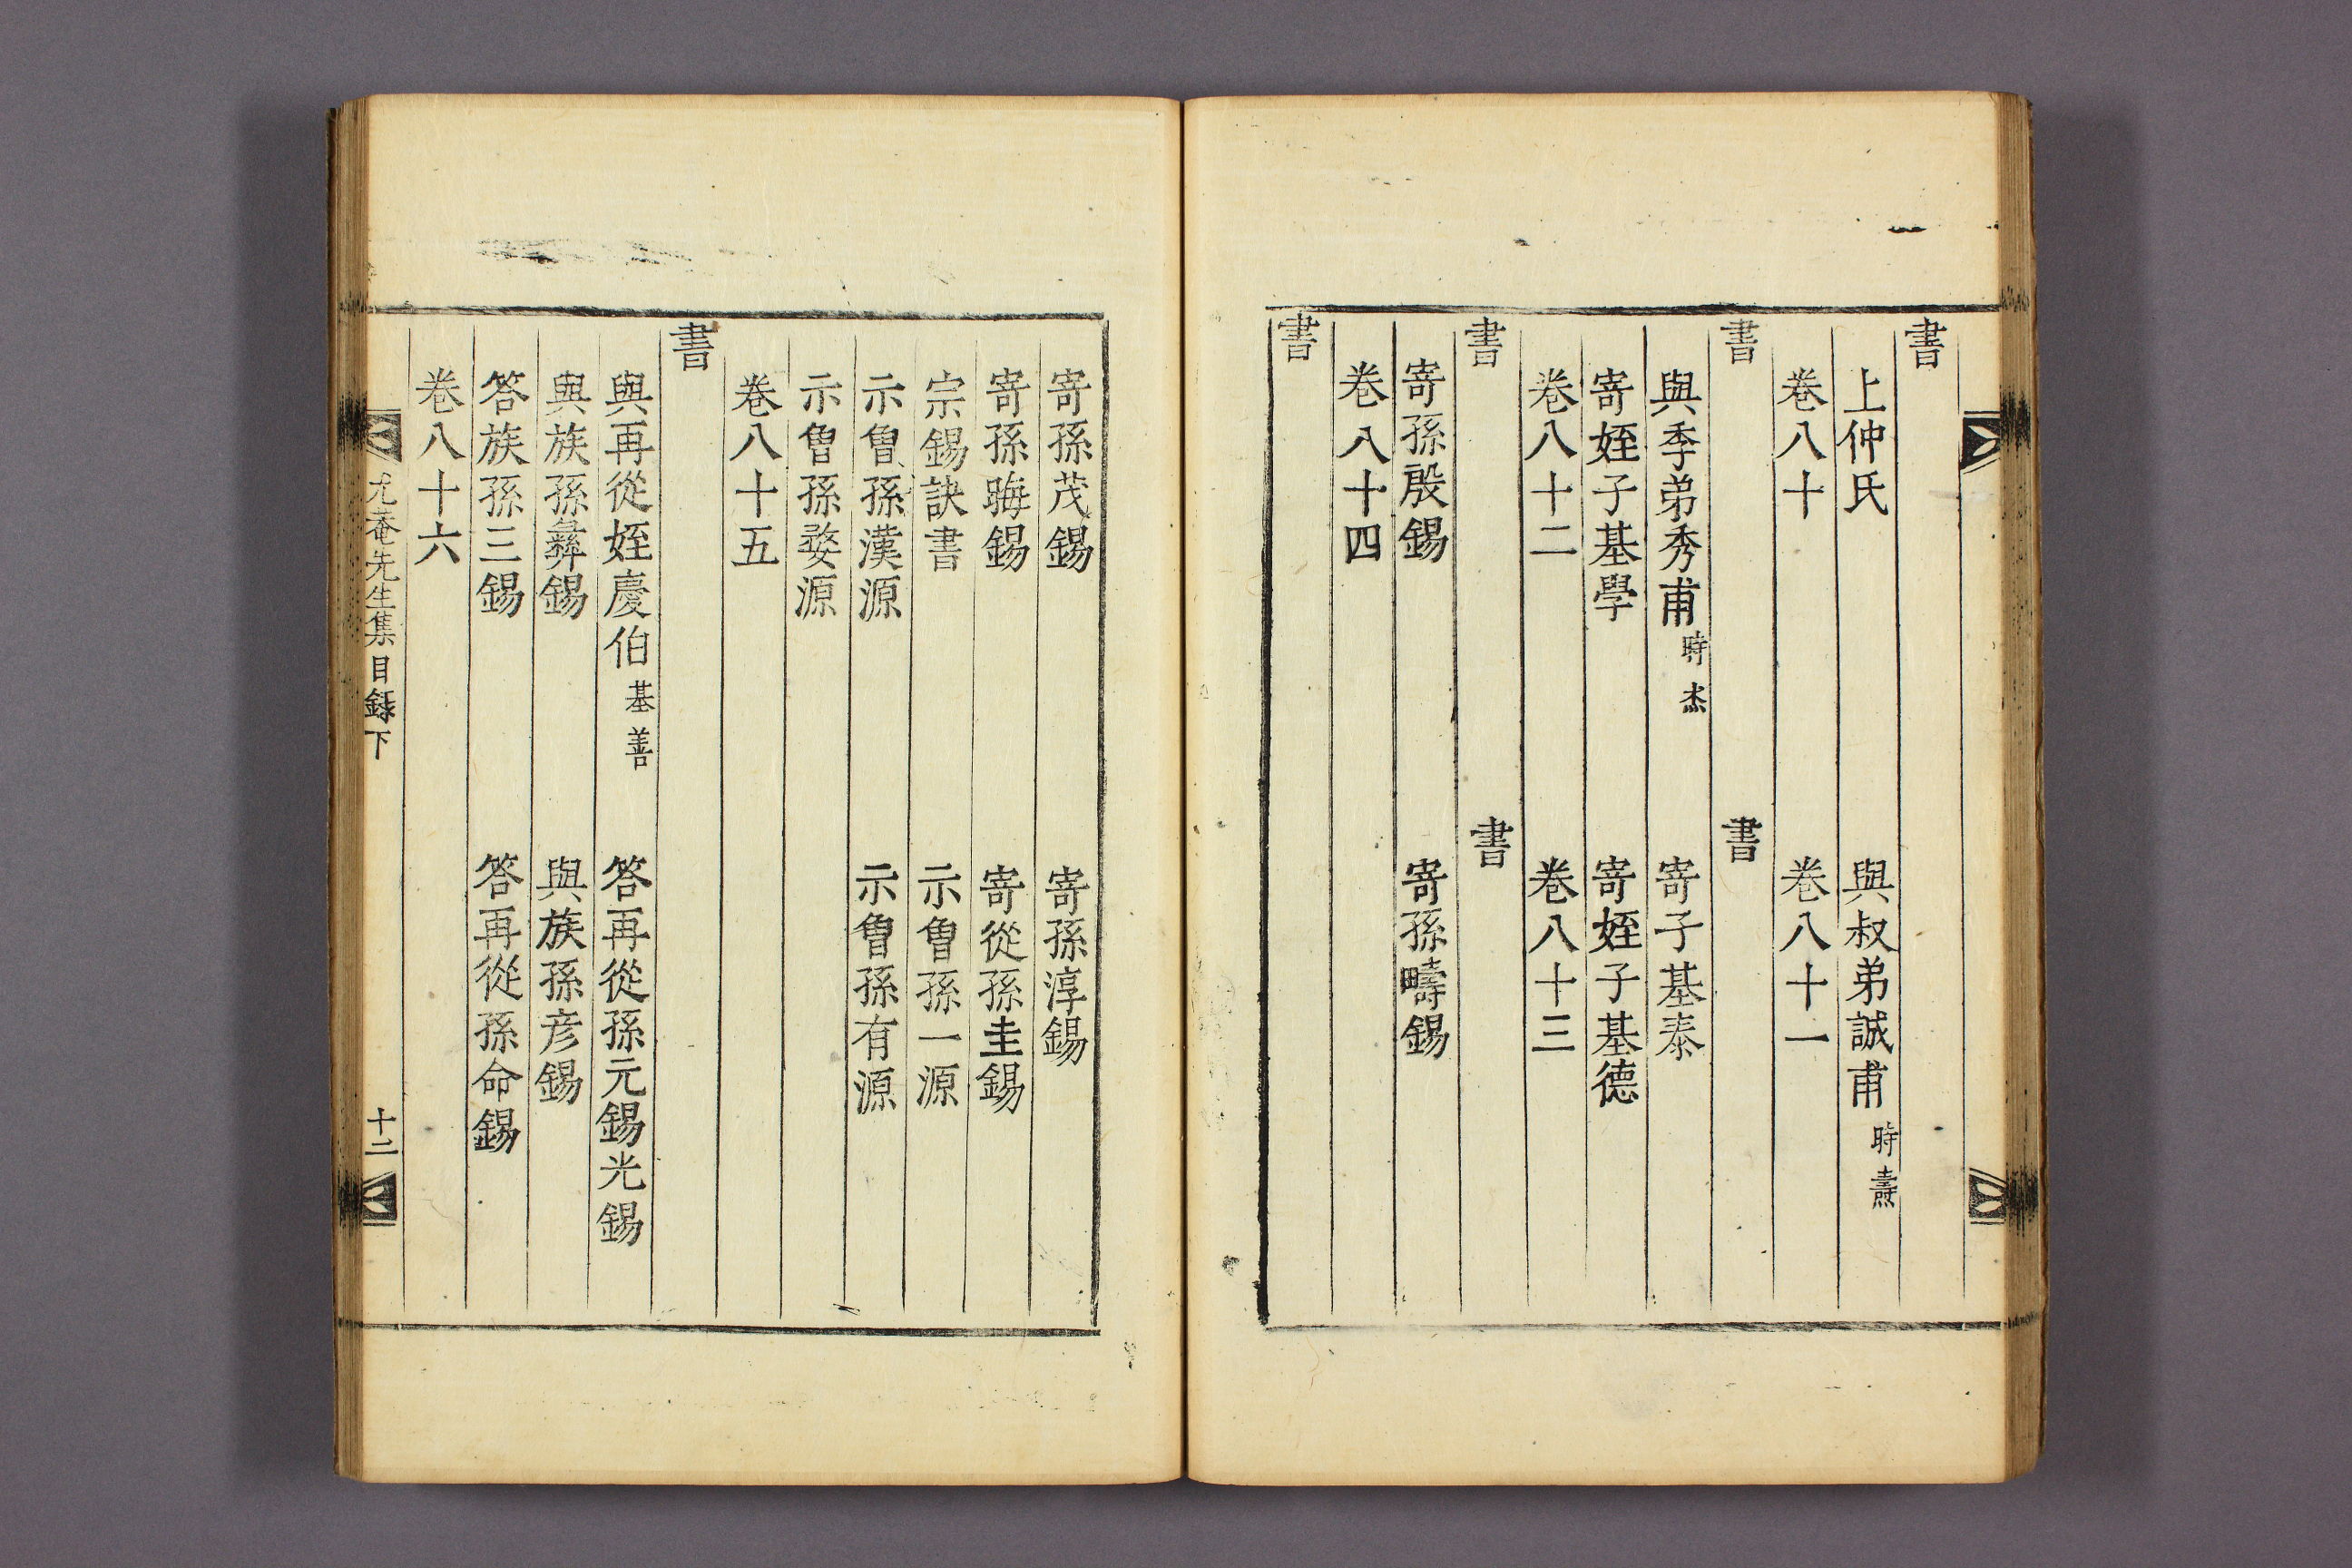 書
上仲氏 與叔弟誠甫 時燾
卷八十 卷八十一
書 書
與季弟秀甫 時杰 寄子基泰
寄姪子基學 寄姪子基德
卷八十二 卷八十三
書 書
寄孫殷錫 寄孫疇錫
卷八十四
書
寄孫茂錫 寄孫淳錫
寄孫晦錫 寄從孫圭錫
宗錫訣書 示曾孫一源
示曾孫漢源 示曾孫有源
示曾孫婺源
卷八十五
書
與再從姪慶伯 基善 答再從孫元錫光錫
與族孫彝錫 與族孫彦錫
答族孫三錫 答再從孫命錫
卷八十六
尤菴先生集目録下 十二